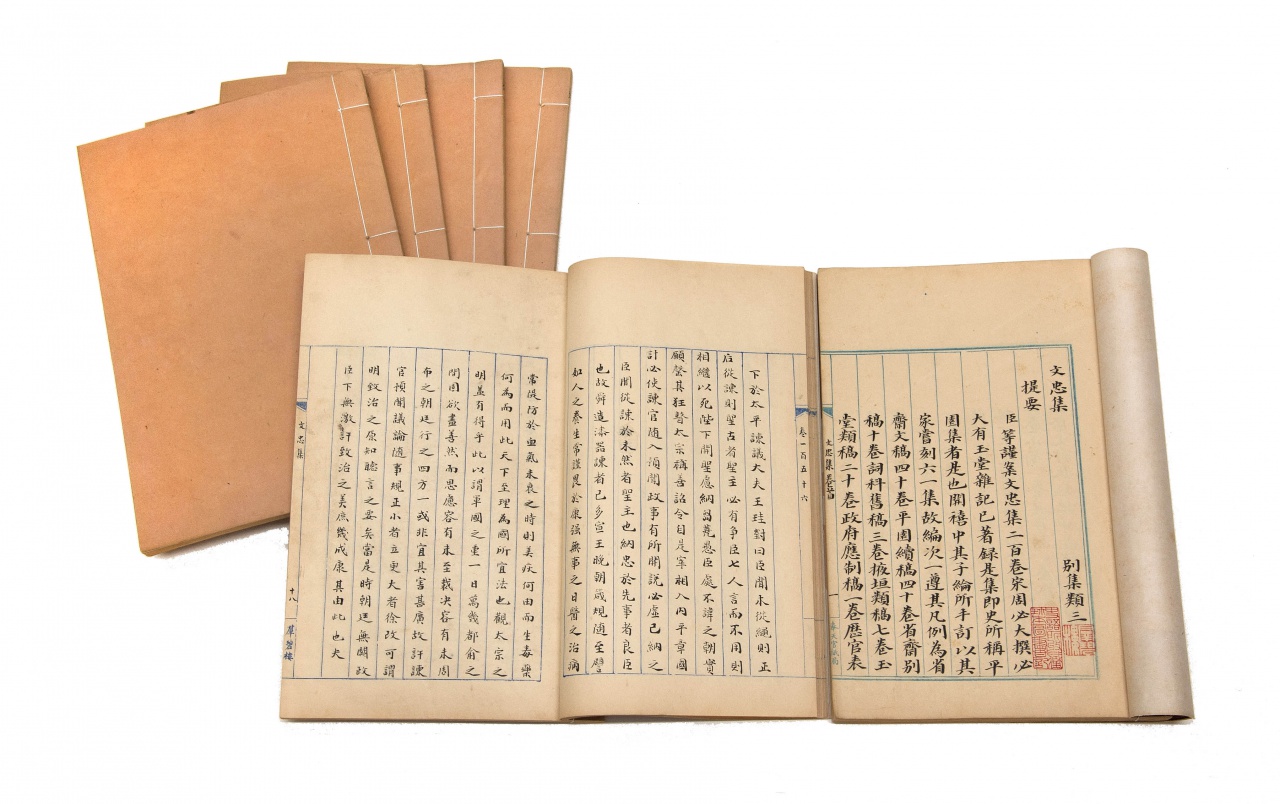 文忠集 別集類三
提要
臣等謹案文忠集二百卷宋周必大撰必
大有玉堂雜記已著録是集即史所稱平
園集者是也開禧中其子綸所手訂以其
家嘗刻六一集故編次一遵其凡例為省
齋文稿四十卷平園續稿四十卷省齋別
稿十卷詞科舊稿三卷掖垣類稿七卷玉
堂類稿二十卷政府應制稿一卷歷官表
文忠集卷首 一
卷一百五十六
下於太平諫議大夫王珪對曰臣聞木從繩則正
后從諫則聖古者聖主必有爭臣七人言而不用則
相繼以死陛下開聖慮納芻蕘愚臣處不諱之朝實
願罄其狂瞽太宗稱善詔令自是宰相入内平章國
計必使諫官隨入預聞政事有所開說必虛己納之
臣聞從諫於未然者聖主也納忠於先事者良臣
也故舜造漆器諫者已多宣王晚朝箴規隨至譬
如人之養生常謹畏於康强無事之日醫之治病
常隄防於血氣未衰之時則美疢何由而生毒藥
何為而用此天下至理為國所宜法也觀太宗之
明蓋有得乎此以謂軍國之重一日萬幾都俞之
間固欲盡善然而思慮容有未至裁决容有未周
布之朝廷行之四方一或非宜其害甚廣故許諫
官預聞議論隨事規正小者立更大者徐改可謂
明致治之原知聽言之要矣當是時朝廷無闕政
臣下無激訐致治之美庶幾成康其由此也夫
文忠集 十八